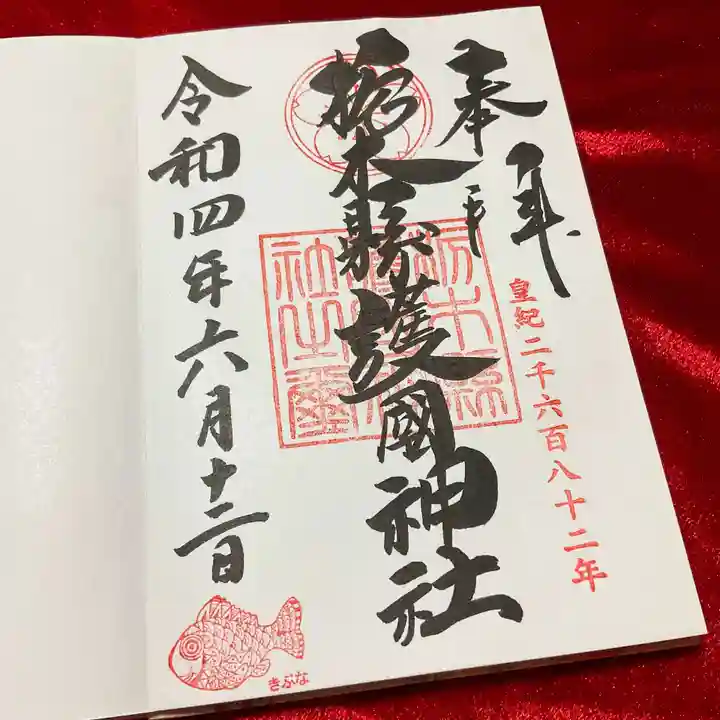 奉拝
皇紀二千六百八十二年
栃木縣護國神社
栃木縣護國神社之璽
令和四年六月十二日
きぶな